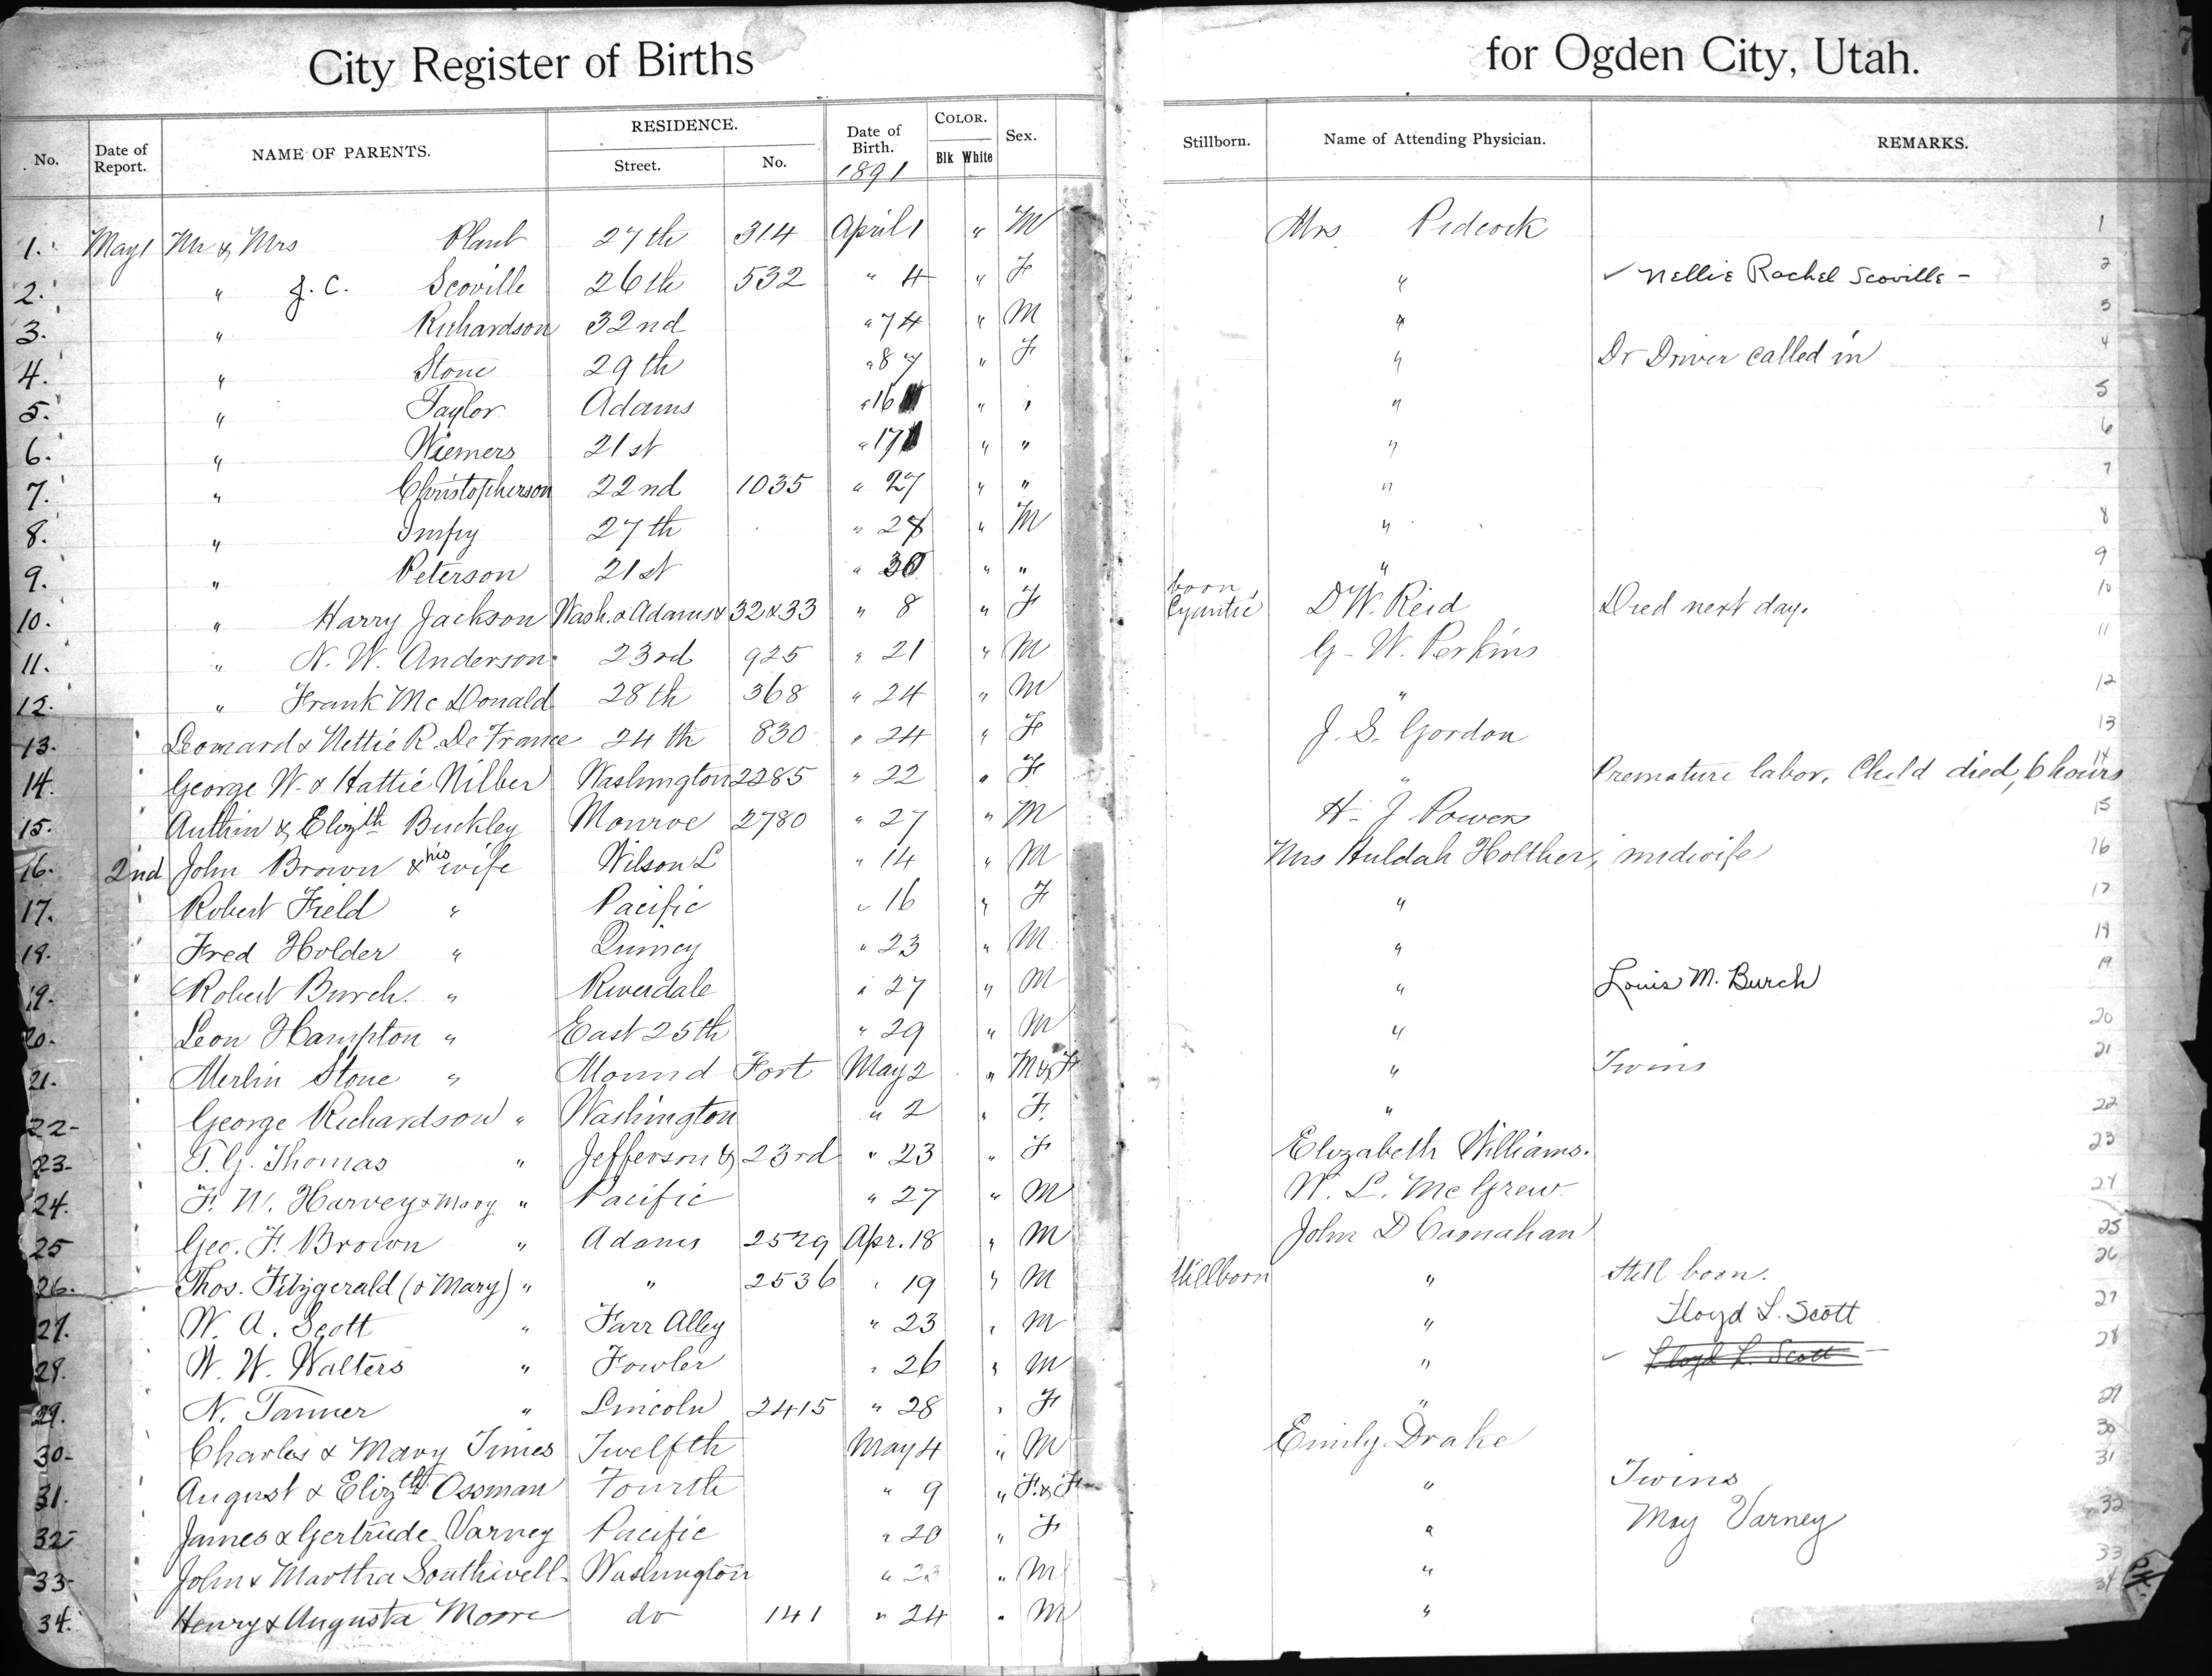 City Register of Births for Ogden City, Utah.
No. Date of Report. NAME OF PARENTS. RESIDENCE. Street. No. Date of Birth. 1891 COLOR. Blk White Sex. Stillborn. Name of Attending Physician. REMARKS.
1. May 1 Mr & Mrs Plant 27th 314 April 1 " M Mrs Pidcock 1
2. " J. C. Scoville 26th 532 " 4 " F " ✓ Nellie Rachel Scoville - 2
3. " Richardson 32nd " 4 " M " 3
4. " Stone 29th " " F " Dr Driver called in 4
5. " Taylor Adams " 16 " " " 5
6. " Wiemers 21st " 17 " " " 6
7. " Christopherson 22nd 1035 " 27 " " " 7
8. " Impy 27th " 28 " M " 8
9. " Peterson 21st " 30 " " " 9
10. " Harry Jackson Wash. & Adams & 32 & 33 " 8 " F born Cyantic D W. Reid Died next day. 10
11. " N. W. Anderson 23rd 925 " 21 " M G. W. Perkins 11
12. " Frank Mc Donald 28th 368 " 24 " M " 12
13. Leonard & Nettie R. De France 24th 830 " 24 " F J. S. Gordon 13
14. George W. & Hattie Wilber Washington 2285 " 22 " F " Premature labor. Child died, 6 hours 14
15. & Elizth Buckley Monroe 2780 " 27 " M H. J Powers 15
16. 2nd John Brown & his wife Wilson L " 14 " M Mrs Huldah Holther, midwife 16
17. Robert Field " Pacific " 16 " F " 17
18. Fred Holder " Quincy " 23 " M " 18
19. Robert Burch. " Riverdale " 27 " M " Louis M. Burch 19
20. Leon Hampton " East 25th " 29 " M " 20
21. Merlin Stone " Mound Fort May 2 " M & F " Twins 21
22- George Richardson " Washington " 2 " F. " 22
23- T. G. Thomas " Jefferson & 23rd " 23 " F Elizabeth Williams. 23
24. F. W. Harvey & Mary " Pacific " 27 " M W. L. McGrew 24
25 Geo. F. Brown " Adams 2579 Apr. 18 " M John D Carnahan 25
26. Thos. Fitzgerald (& Mary) " " 2536 " 19 " M Stillborn " Still born. 26
27. W. A. Scott " Farr Alley " 23 " M " Lloyd L. Scott 27
28. W. W. Walters " Fowler " 26 " M " ✓ Lloyd L. Scott - 28
29. N. Tanner " Lincoln 2415 " 28 " F " 29
30- Charles & Mary Times Twelfth May 4 " M Emily Drake 30
31. August & Elizth Ossman Fourth " 9 " F. & F " Twins 31
32- James & Gertrude Varney Pacific " 20 " F " May Varney 32
33- John & Martha Southwell Washington " 23 " M " 33
34. Henry & Augusta Moore do 141 " 24 " M " 34